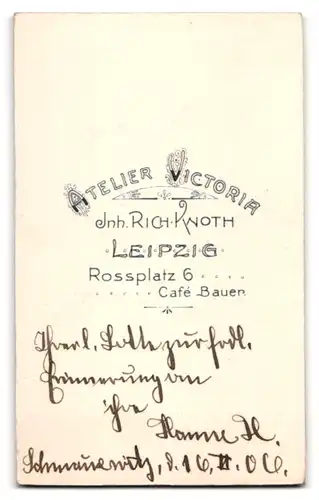 ATELIER VICTORIA
Inh. RICH. KNOTH
LEIPZIG
Rossplatz 6
Café Bauer
Ihrer l. Lotte zur frdl.
Erinnerung an
ihre Hanne H.
Schmauswitz, d. 16. II. 06.